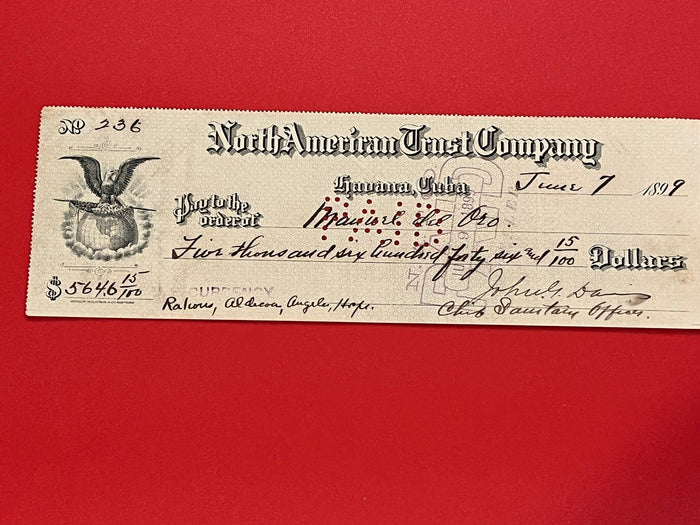 Nº 236
North American Trust Company
Havana, Cuba June 7 1899
Pay to the order of Manuel Del Oro.
Five thousand six hundred forty six and 15/100 Dollars
$ 5646 15/100
CURRENCY
John G Davis
Angelo, Hope. Chief Sanitary Officer.